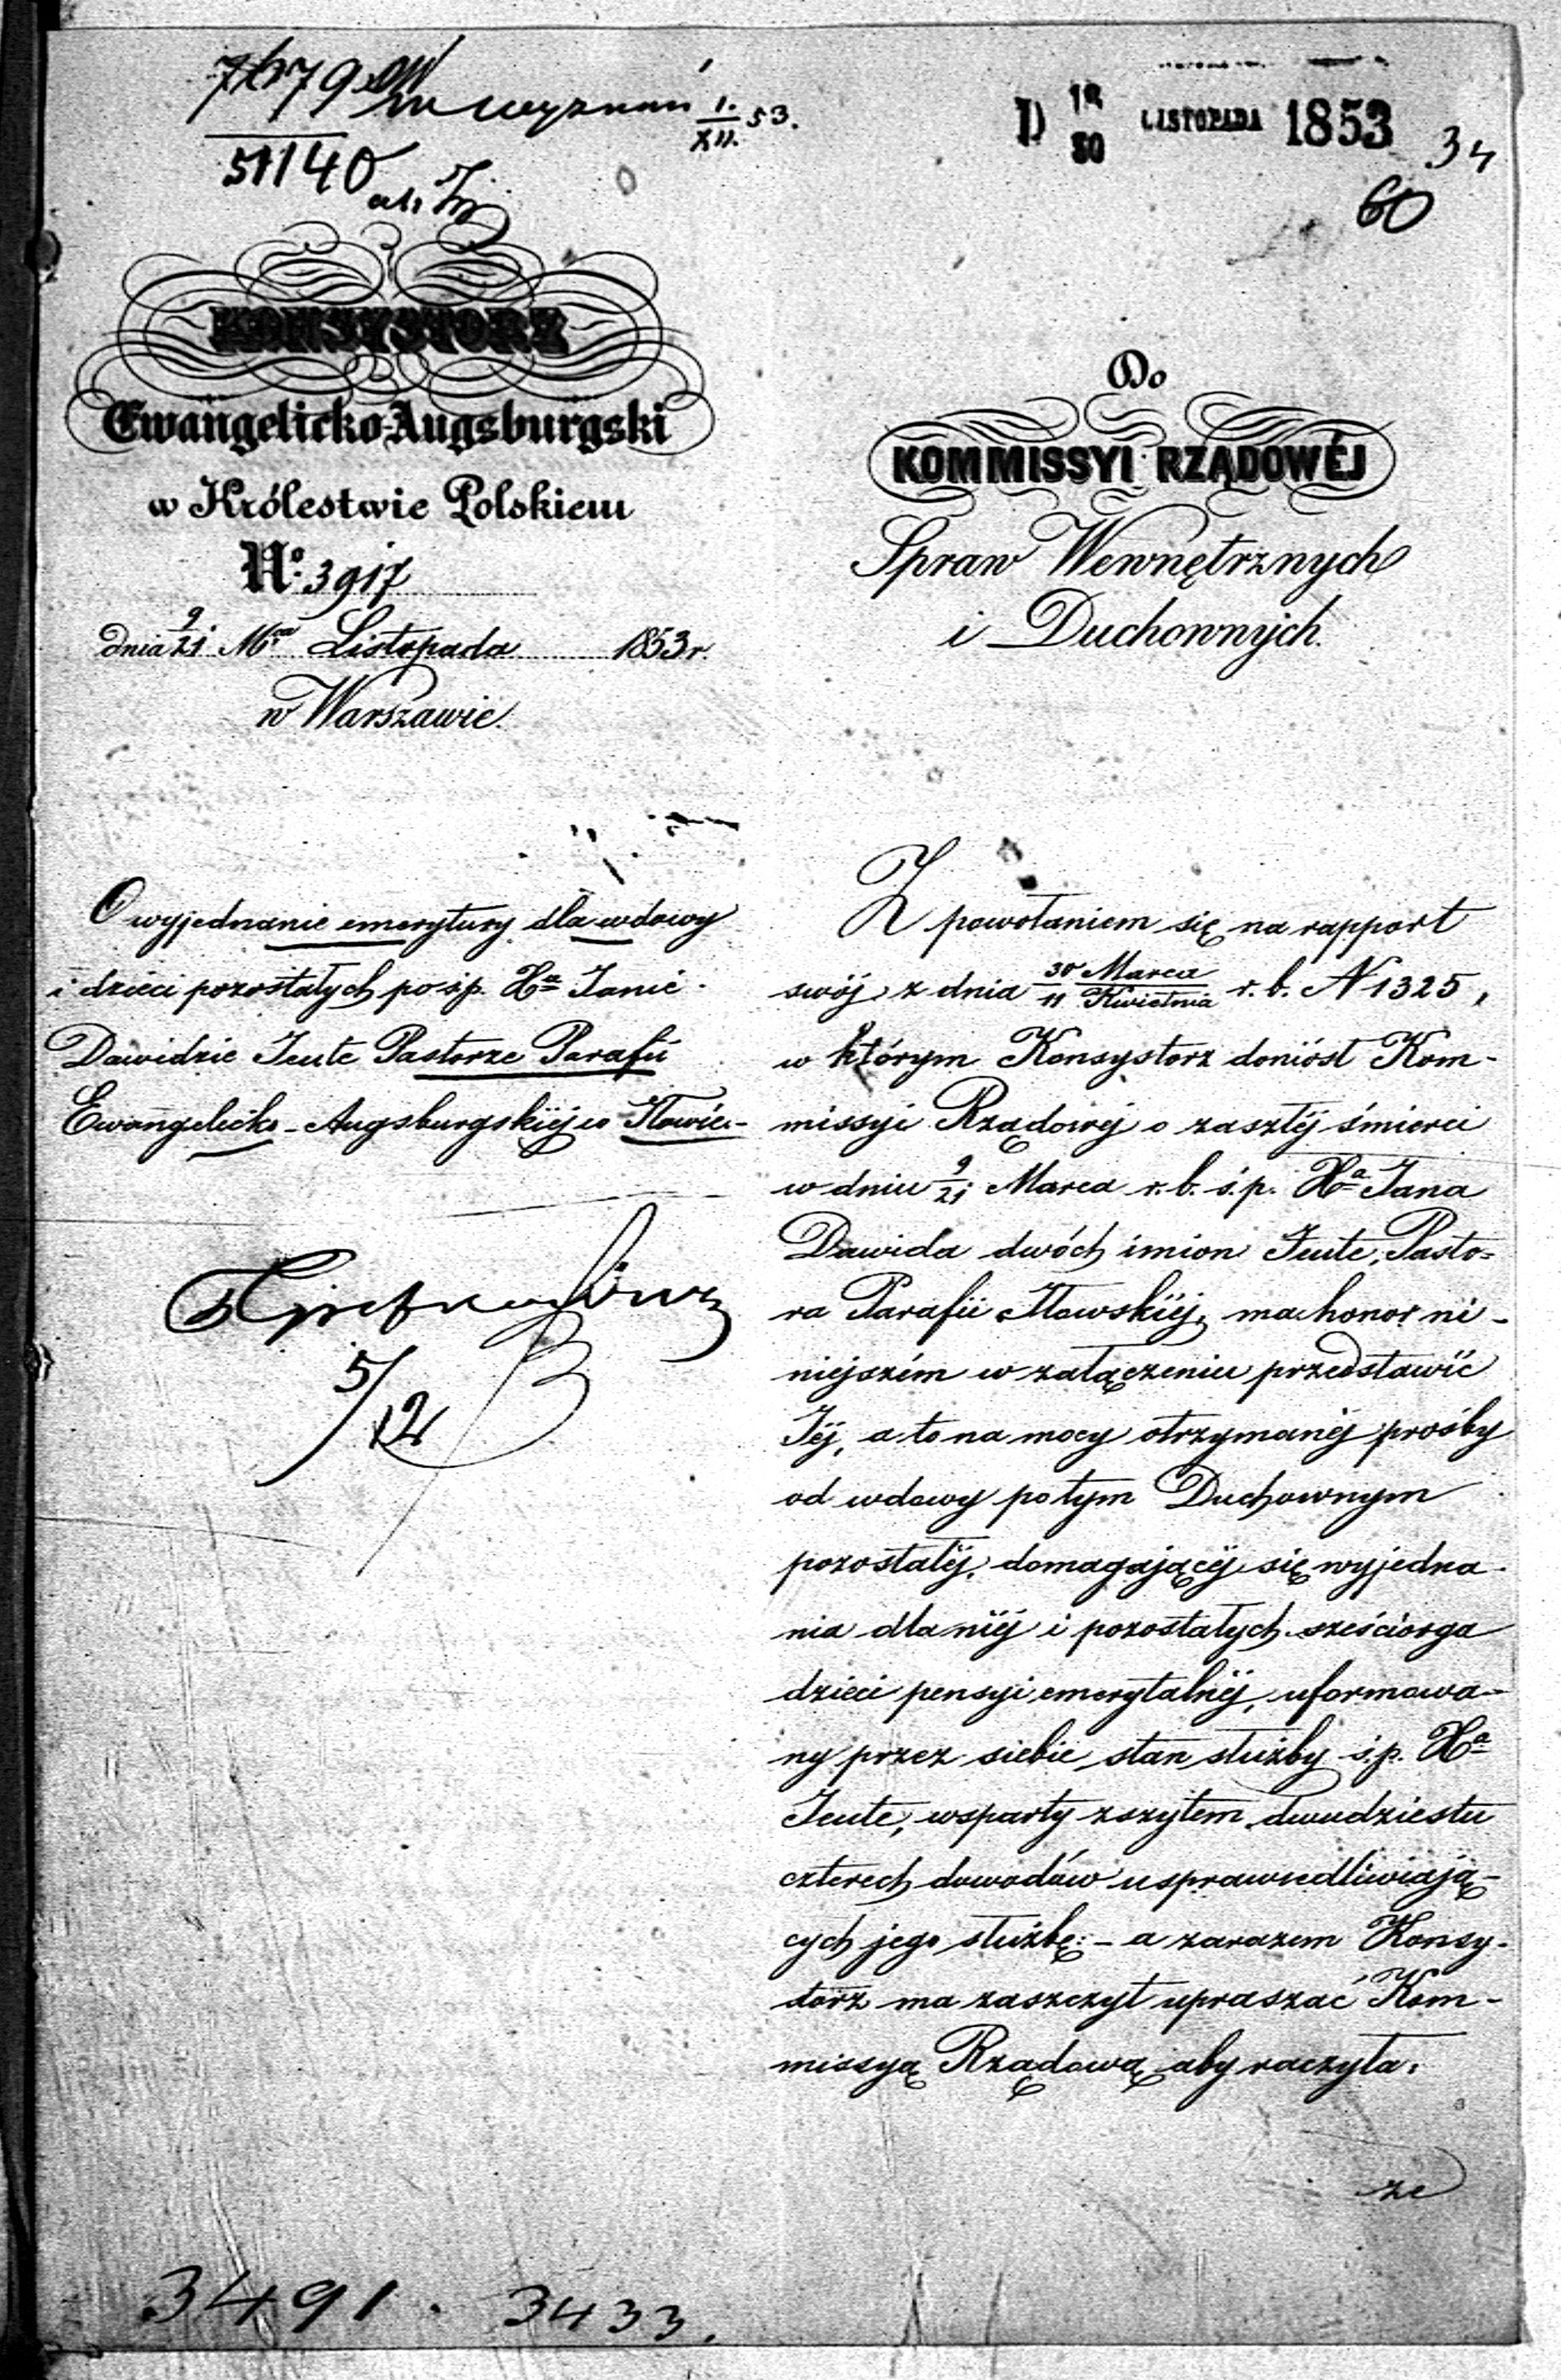 7679
w wyznań I./XII. 53.
51140
D 18/30 LISTOPADA 1853
34
60
KONSYSTORZ
Ewangelicko-Augsburgski
w Królestwie Polskiem
No. 3917
dnia 9/21 Mca Listopada 1853 r.
w Warszawie.
Do
KOMMISSYI RZĄDOWÉJ
Spraw Wewnętrznych
i Duchownych.
O wyjednanie emerytury dla wdowy
i dzieci pozostałych po ś.p. Xa Janie
Dawidzie Jeute Pastorze Parafii
Ewangelicko-Augsburgskiéj w Iłowie.-
5/12
Z powołaniem się na rapport
swój z dnia 30 Marca/11 Kwietnia r. b. N 1325,
w którym Konsystorz doniósł Kom-
missyi Rządowej o zaszłéj śmierci
w dniu 9/21 Marca r. b. ś.p. Xa Jana
Dawida dwóch imion Jeute, Pasto-
ra Parafii Iłowskiéj, ma honor ni-
niejszém w załączeniu przedstawić
Jéj, a to na mocy otrzymanéj prośby
od wdowy po tym Duchownym
pozostałéj, domagającéj się wyjedna-
nia dla niéj i pozostałych sześciorga
dzieci pensyi emerytalnéj, uformowa-
ny przez siebie stan służby ś.p. Xa
Jeute, wsparty zszytem dwudziestu
czterech dowodów usprawiedliwiają-
cych jego służbę: - a zarazem Konsy-
storz ma zaszczyt upraszać Kom-
missyą Rządową aby raczyła
ze
3491. 3433.